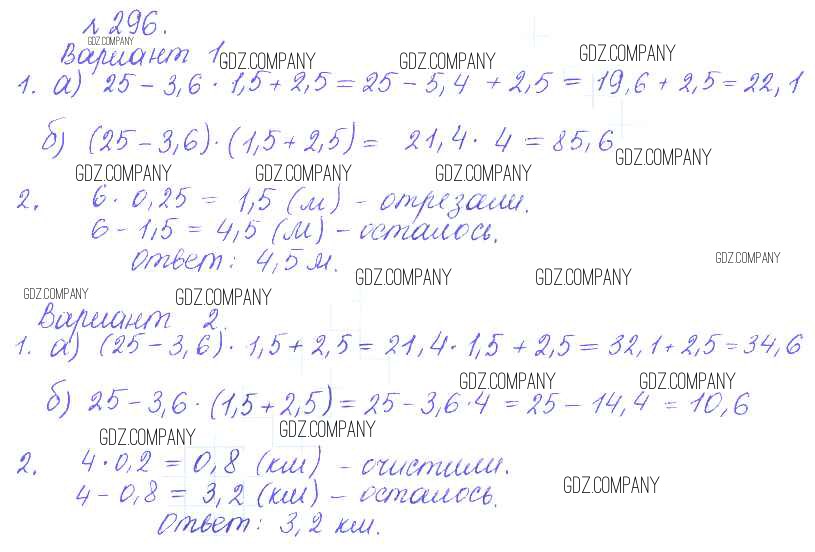 № 296.
GDZ.COMPANY
Вариант 1
GDZ.COMPANY GDZ.COMPANY GDZ.COMPANY
1. а) 25 - 3,6 · 1,5 + 2,5 = 25 - 5,4 + 2,5 = 19,6 + 2,5 = 22,1
б) (25 - 3,6) · (1,5 + 2,5) = 21,4 · 4 = 85,6
GDZ.COMPANY GDZ.COMPANY GDZ.COMPANY GDZ.COMPANY
2. 6 · 0,25 = 1,5 (м) - отрезали.
6 - 1,5 = 4,5 (м) - осталось.
Ответ: 4,5 м.
GDZ.COMPANY
GDZ.COMPANY GDZ.COMPANY
GDZ.COMPANY GDZ.COMPANY
Вариант 2.
1. а) (25 - 3,6) · 1,5 + 2,5 = 21,4 · 1,5 + 2,5 = 32,1 + 2,5 = 34,6
GDZ.COMPANY GDZ.COMPANY
б) 25 - 3,6 · (1,5 + 2,5) = 25 - 3,6 · 4 = 25 - 14,4 = 10,6
GDZ.COMPANY GDZ.COMPANY
2. 4 · 0,2 = 0,8 (км) - очистили.
4 - 0,8 = 3,2 (км) - осталось.
GDZ.COMPANY
Ответ: 3,2 км.